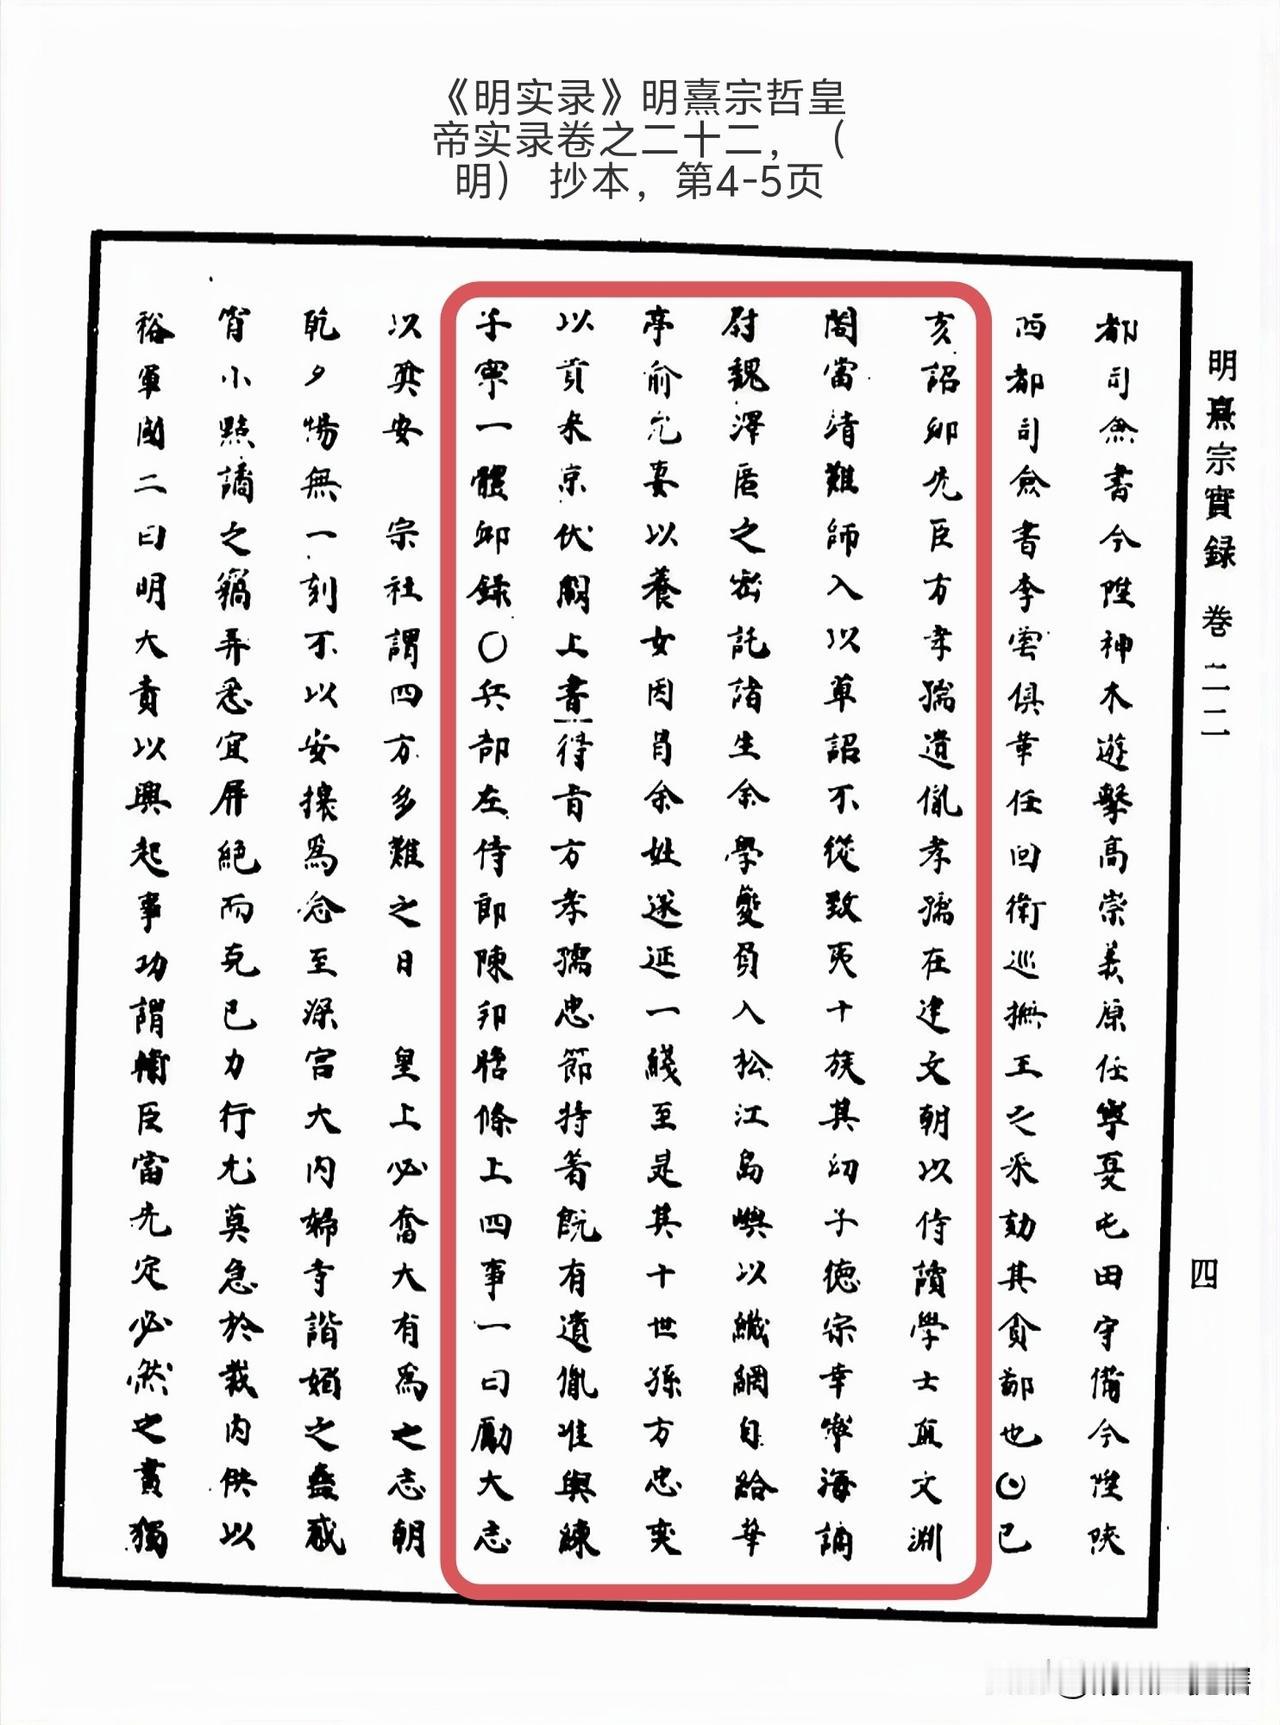 《明实录》明熹宗哲皇
帝实录卷之二十二，（
明） 抄本，第4-5页
明熹宗實録 卷二二
四
都司僉書今陞神木遊擊高崇義原任寧夏屯田守備今陞陝
西都司僉書李雲俱革任回衛巡撫王之采劾其貪鄙也○己
亥詔卹先臣方孝孺遺胤孝孺在建文朝以侍讀學士直文淵
閣當靖難師入以草詔不從致夷十族其幼子德宗幸寧海謫
尉魏澤匿之密託諸生余學夔負入松江島嶼以織網自給華
亭俞允妻以養女因冐余姓遂延一綫至是其十世孫方忠奕
以貢來京伏闕上書得旨方孝孺忠節特著既有遺胤准與練
子寧一體卹錄○兵部左侍郎陳邦瞻條上四事一曰勵大志
以奠安 宗社謂四方多難之日 皇上必奮大有為之志朝
乾夕惕無一刻不以安攘為念至深宮大內婦寺諧媚之蠱惑
宵小點譎之竊弄悉宜屏絕而克己力行尤莫急於裁內供以
裕軍國二曰明大責以興起事功謂輔臣當先定必然之畫獨